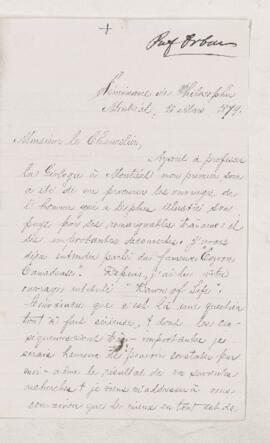 Prof Urban
Séminaire de Philosophie
Montréal, 10 Mars 1879.
Monsieur le Chevalier,
Ayant à professer
la Géologie à Montréal mon premier soin
a été de me procurer les ouvrages de
l'homme qui a le plus illustré son
pays par ses remarquables travaux et
ses importantes découvertes. J'avais
bien entendu parler du fameux "Eozoon
Canadense". Depuis, j'ai lu votre
ouvrage intitulé "Dawn of Life".
Convaincu que c'est là une question
tout à fait sérieuse, & dont les con-
séquences sont très importantes je
serais heureux de pouvoir constater par
moi-même le résultat de vos savantes
recherches & je viens m'adresser à vous
convaincu que le mieux en tout est de